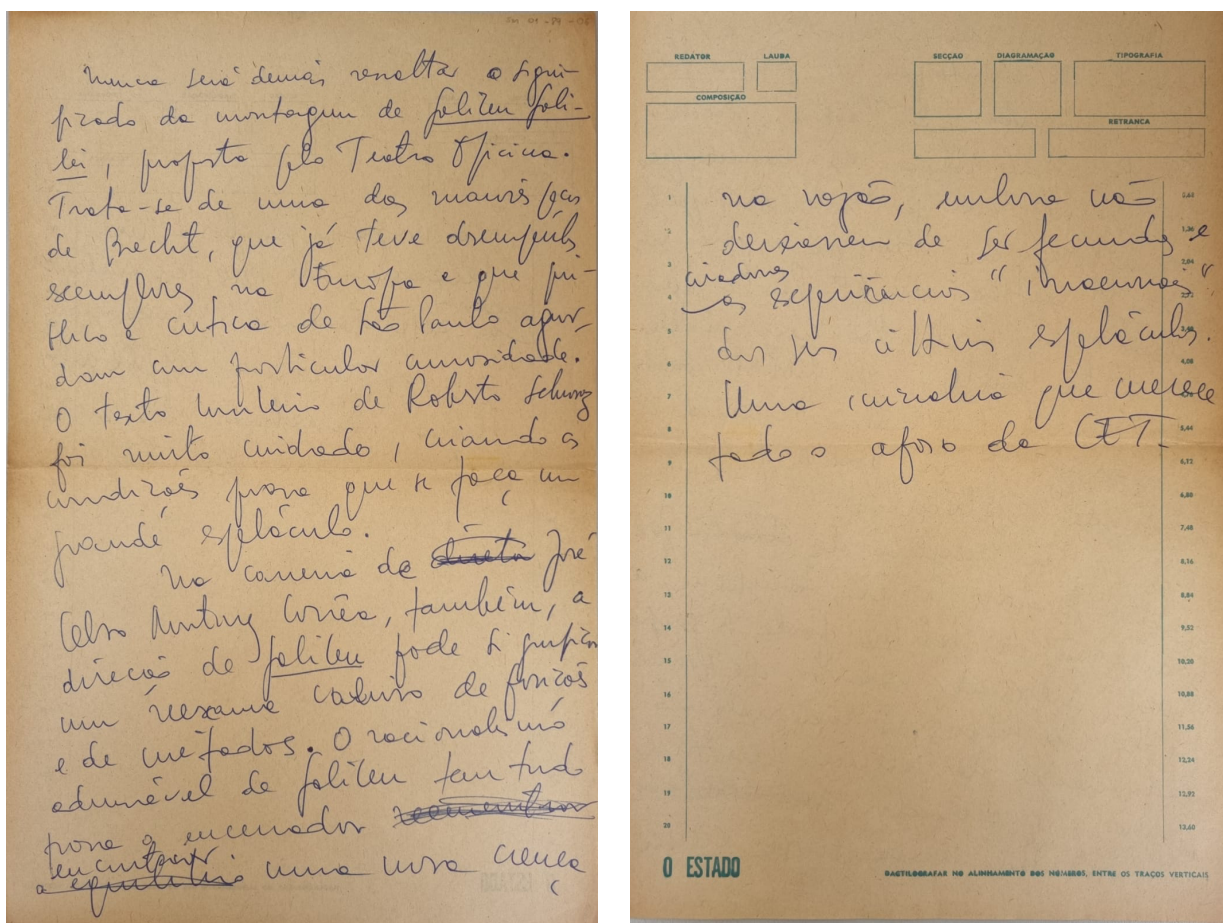 Nunca será demais ressaltar o signi-
ficado da montagem de Galileu Gali-
lei, proposta pelo Teatro Oficina.
Trata-se de uma das maiores peças
de Brecht, que já teve desempenhos
exemplares na Europa e que pú-
blico e crítica de São Paulo aguar-
dam com particular curiosidade.
O texto brasileiro de Roberto Schwarz
foi muito cuidado, criando as
condições para que se faça um
grande espetáculo.
Na carreira de José
Celso Martinez Corrêa, também, a
direção de Galileu pode significar
um reexame de posições
e de métodos. O racionalismo
admirável de Galileu tem tudo
para o encenador
encontrar
uma nova crença
REDATOR
LAUDA
SECÇÃO
DIAGRAMAÇÃO
TIPOGRAFIA
COMPOSIÇÃO
RETRANCA
na razão, embora não
deixassem de ser fecundas e
criadoras
as experiências "irracionais"
dos seus últimos espetáculos.
Uma iniciativa que merece
todo o apoio da CET.
1
2
3
4
5
6
7
8
9
10
11
12
13
14
15
16
17
18
19
20
1,36
2,04
4,08
5,44
6,12
6,80
7,48
8,16
8,84
9,52
10,20
10,88
11,56
12,24
12,92
13,60
O ESTADO
DACTILOGRAFAR NO ALINHAMENTO DOS NÚMEROS, ENTRE OS TRAÇOS VERTICAIS